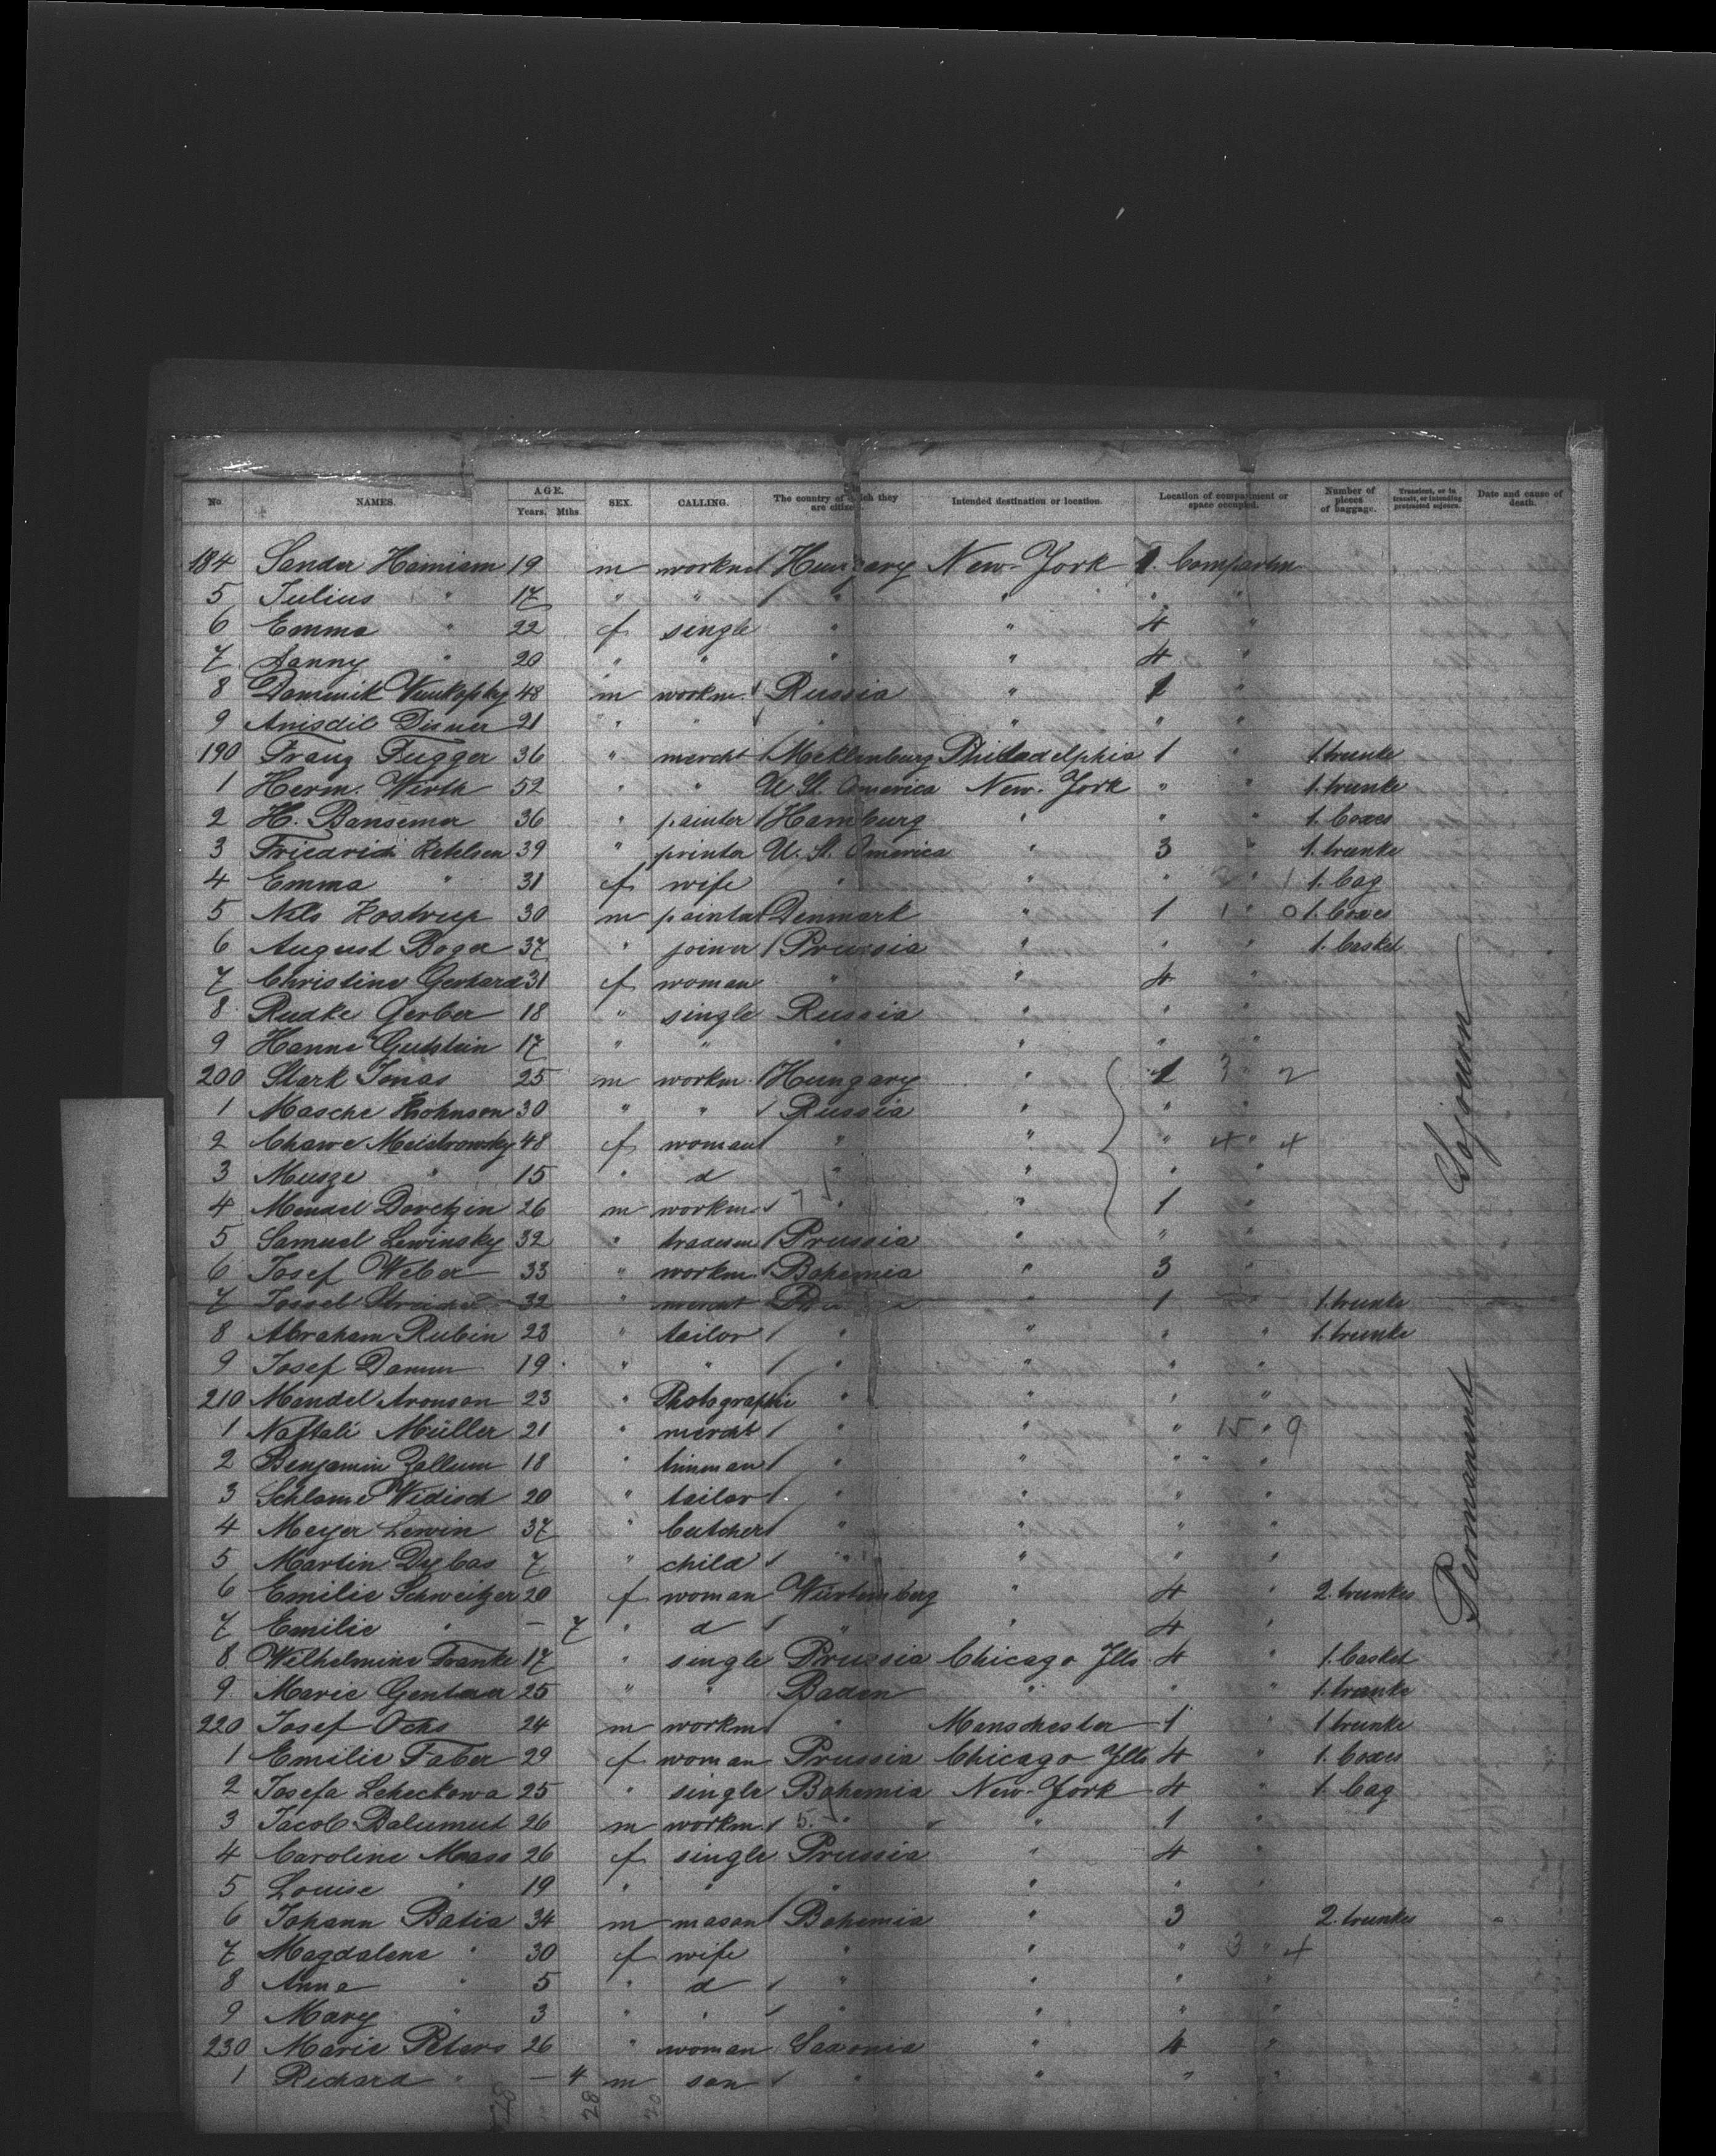 No. NAMES. AGE. Years. Mths. SEX. CALLING. The country of which they are citizens. Intended destination or location. Location of compartment or space occupied. Number of pieces of baggage. Transient, or in transit, or intending protracted sojourn. Date and cause of death.
184 Sander Hamiam 19 m workm Hungary New-York 1. Compartm
5 Julius " 17 " " " " " "
6 Emma " 22 f single " " 4 "
7 Fanny " 20 " " " " 4 "
8 Dominik 48 m workm Russia " 1 "
9 21 " " " " " "
190 Franz Fugger 36 " mercht Mecklenburg Philadelphia 1 " 1. trunke
1 Herm. Wirth 52 " " U. St. America New-York " " 1. trunke
2 H. Bansemer 36 " painter Hamburg " " " 1. boxes
3 Friedrich Retelsen 39 " printer U. St. America " 3 " 1. trunke
4 Emma " 31 f wife " " " 2 " 1 1. bag
5 Nils Kostrup 30 m painter Denmark " 1 1 " 0 1. boxes
6 August Boger 37 " joiner Prussia " " " 1. basket
7 Christine Gerhard 31 f woman " " 4 "
8 Rudke Gerber 18 " single Russia " " "
9 Hanne Gutstein 17 " " " " " "
200 Stark Jonas 25 m workm. Hungary " 1 3 " 2
1 Masche Kohnson 30 " " Russia " " "
2 Chawe Meistrowsky 48 f woman " " " 4 " 4
3 Musze " 15 " d " " " "
4 Mendel Doretzin 26 m workm " " 1 "
5 Samuel Lewinsky 32 " tradesm Prussia " " "
6 Josef Weber 33 " workm Bohemia " 3 "
7 Jossel 32 " mercht " 1 " 1. trunke
8 Abraham Rubin 23 " tailor " " " " 1. trunke
9 Josef Damm 19 " " " " " "
210 Mendel Aronson 23 " Photographi " " " "
1 Naftali Müller 21 " mercht " " " 15 " 9
2 Benjamin Zallum 18 " tinman " " " "
3 Schlome Widisch 20 " tailor " " " "
4 Meyer Lewin 37 " butcher " " " "
5 Martin Dybas 7 " child " " " "
6 Emilie Schweitzer 20 f woman Würtemberg " 4 " 2. trunkes
7 Emilie " — 7 " d " " 4 "
8 Wilhelmine Franke 17 " single Prussia Chicago Ills 4 " 1. basket
9 Marie Gentner 25 " " Baden " " " 1. trunke
220 Josef Ochs 24 m workm " Manschester 1 " 1 trunke
1 Emilie Faber 29 f woman Prussia Chicago Ills 4 " 1. boxes
2 Josefa Leheckowa 25 " single Bohemia New-York 4 " 1. bag
3 Jacob Balumut 26 m workm. 5. " " 1 "
4 Caroline Maass 26 f single Prussia " 4 "
5 Louise " 19 " " " " " "
6 Johann Batia 34 m mason Bohemia " 3 2. trunkes
7 Magdalena " 30 f wife " " " 3 " 4
8 Anna " 5 " d " " " "
9 Mary " 3 " " " " " "
230 Marie Peters 26 " woman Saxonia " 4 "
1 Richard " — 4 m son " " " "
28 28 20
Permanent Sojourn